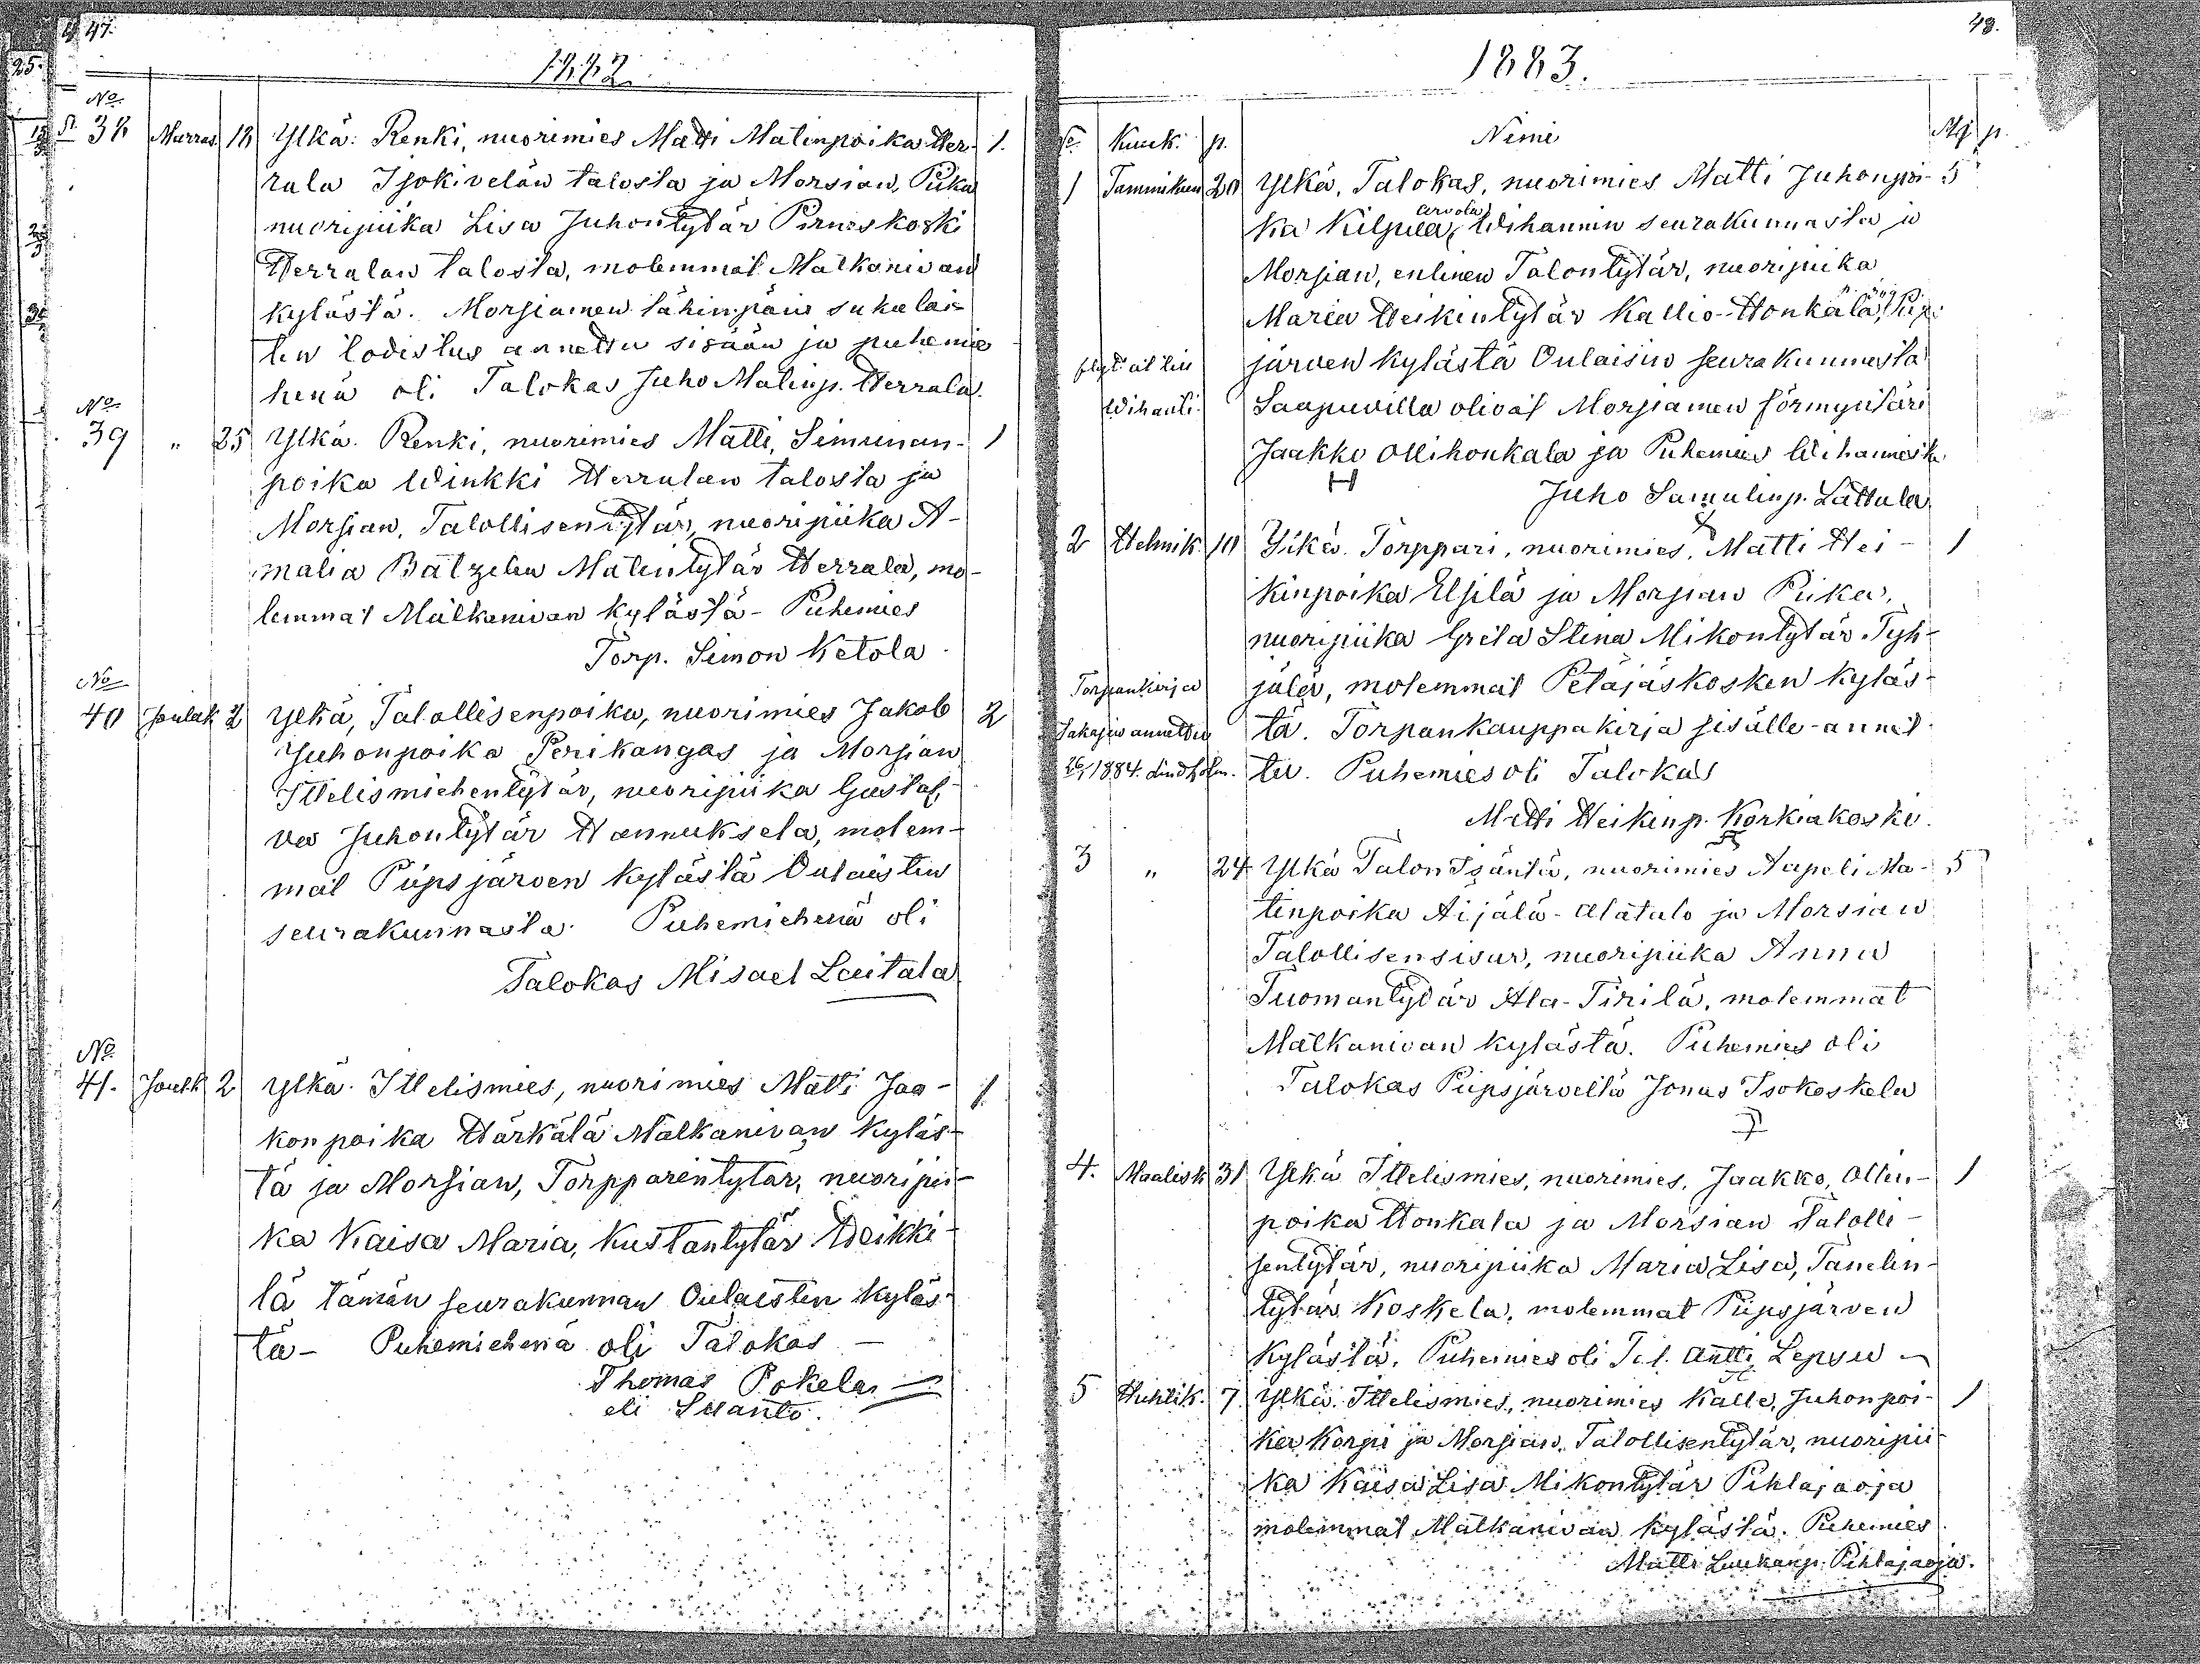 47.
1882
No
38 Marras. 18 Ylkä: Renki, nuorimies Matti Matinpoika Her- 1.
rala Isokivelän talosta ja Morsian, Piika
nuoripiika Lisa Juhontytär Pirneskoski
Herralan talosta, molemmat Matkanivan
kylästä. Morsiamen lähinpäin sukulai-
ten todistus annettu sisään ja puhemie
henä oli Talokas Juho Matinp. Herrala.
No
39 " 25 Ylkä. Renki, nuorimies Matti, Simunan- 1
poika Winkki Herralan talosta ja
Morsian, Talollisentytär, nuoripiika A-
malia Matintytär Herrala, mo-
lemmat Matkanivan kylästä- Puhemies
Torp. Simon Ketola
No
40 Joulak 2 Ylkä, Talollisenpoika, nuorimies Jakob 2
Juhonpoika Perikangas ja Morsian
Ittelismiehentytär, nuoripiika Gustaf-
va Juhontytär Hannuksela, molem-
mat Piipsjärven kylästä Oulaisten
seurakunnasta. Puhemiehenä oli
Talokas Misael Laitala
No
41. Joulk 2 Ylkä. Ittelismies, nuorimies Matti Jaa- 1
konpoika Härkälä Matkanivan kyläs-
tä ja Morsian, Torpparintytär, nuoripii-
ka Kaisa Maria, Kustantytär Heikki-
lä tämän seurakunnan Oulaisten kyläs-
tä- Puhemiehenä oli Talokas
Thomas Pokela
eli Suanto.
48.
1883.
No Kuuk. p. Nimi Mj p.
1 Tammikuu 20 Ylkä, Talokas, nuorimies Matti Juhonpoi- 5
arvola
ka Kilpua, Wihannin seurakunnasta ja
Morsian, entinen Talontytär, nuoripiika
Maria Heikintytär Kallio-Honkala, Piip
flyt. at till järven kylästä Oulaisin seurakunnasta
Wihanti. Saapuvilla olivat Morsiamen förmyntäri
Jaakko Ollihonkala ja Puhemies
Juho Samulinp. Lättula
2 Helmik. 10 Ylkä. Torppari, nuorimies, Matti Hei- 1
kinpoika Elsilä ja Morsian Piika,
nuoripiika Greta Stina Mikontytär Tyh-
Torpankirja jälä, molemmat Petäjäskosken kyläs-
takasin annettu tä. Torpankauppakirja sisälle-annet-
1884. Lindholm. tu. Puhemies oli Talokas
Matti Heikinp. Korkiakoski.
3 " 24 Ylkä Talon Isäntä, nuorimies Aapeli Ma- 5
tinpoika Äijälä-Alatalo ja Morsian
Talollisensisar, nuoripiika Anna
Tuomantytär Ala-Tirilä, molemmat
Matkanivan kylästä. Puhemies oli
Talokas Piipsjärveltä Jonas Isokoskela
4. Maalisk 31 Ylkä Ittelismies, nuorimies, Jaakko, Ollin- 1
poika Honkala ja Morsian Talolli-
sentytär, nuoripiika Maria Lisa, Tanelin-
tytär Koskela, molemmat Piipsjärven
Kylästä, Puhemies oli Tal. Antti Leppu
5 Huhtik. 7. Ylkä. Ittelismies, nuorimies Kalle, Juhonpoi- 1
ka Korpi ja Morsian, Talollisentytär, nuoripii-
ka Kaisa Lisa Mikontytär Pihlajaoja
molemmat Matkanivan kylästä. Puhemies
Matti Luukanp. Pihlajaoja.